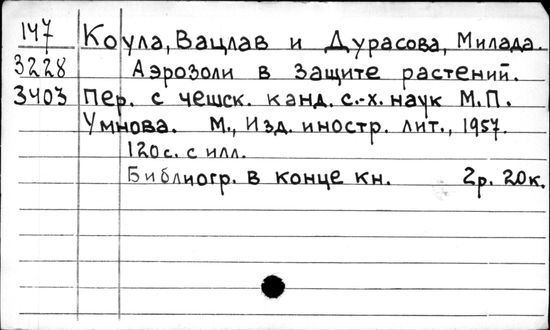 147 Коула, Вацлав и Дурасова, Милада.
3228 Аэрозоли в защите растений.
3403 Пер. с чешск. канд. с.-х. наук М.П.
Умнова. М., Изд. иностр. лит., 1957.
120с. с илл.
Библиогр. в конце кн. 2р. 20к.